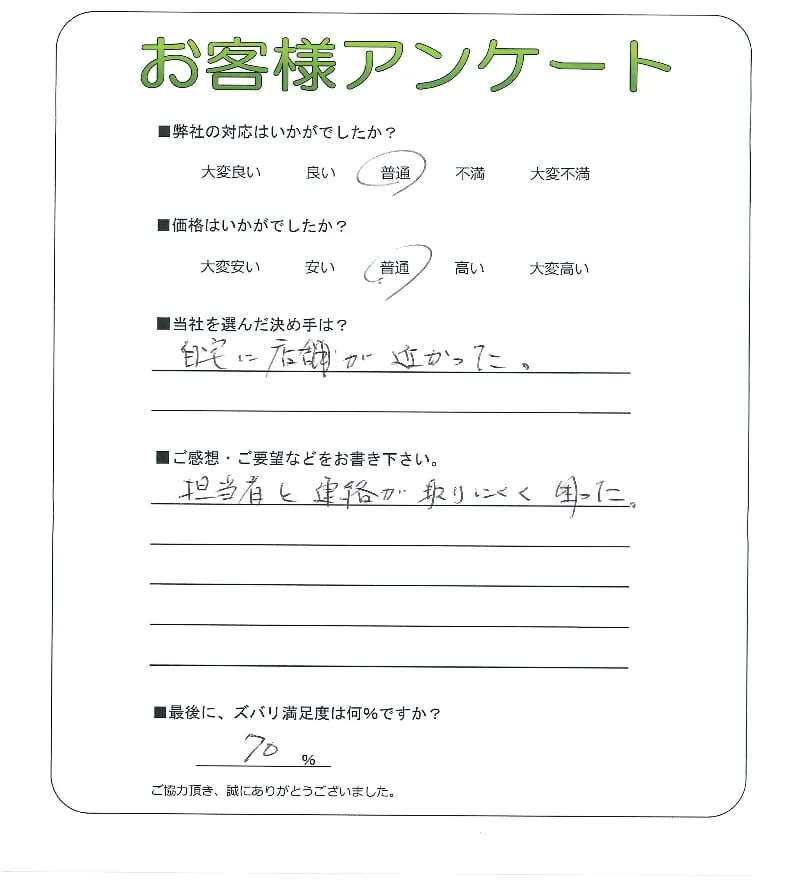 お客様アンケート
■弊社の対応はいかがでしたか？
大変良い 良い 普通 不満 大変不満
■価格はいかがでしたか？
大変安い 安い 普通 高い 大変高い
■当社を選んだ決め手は？
自宅に店舗が近かった。
■ご感想・ご要望などをお書き下さい。
担当者と連絡が取りにくく困った。
■最後に、ズバリ満足度は何%ですか？
70 %
ご協力頂き、誠にありがとうございました。